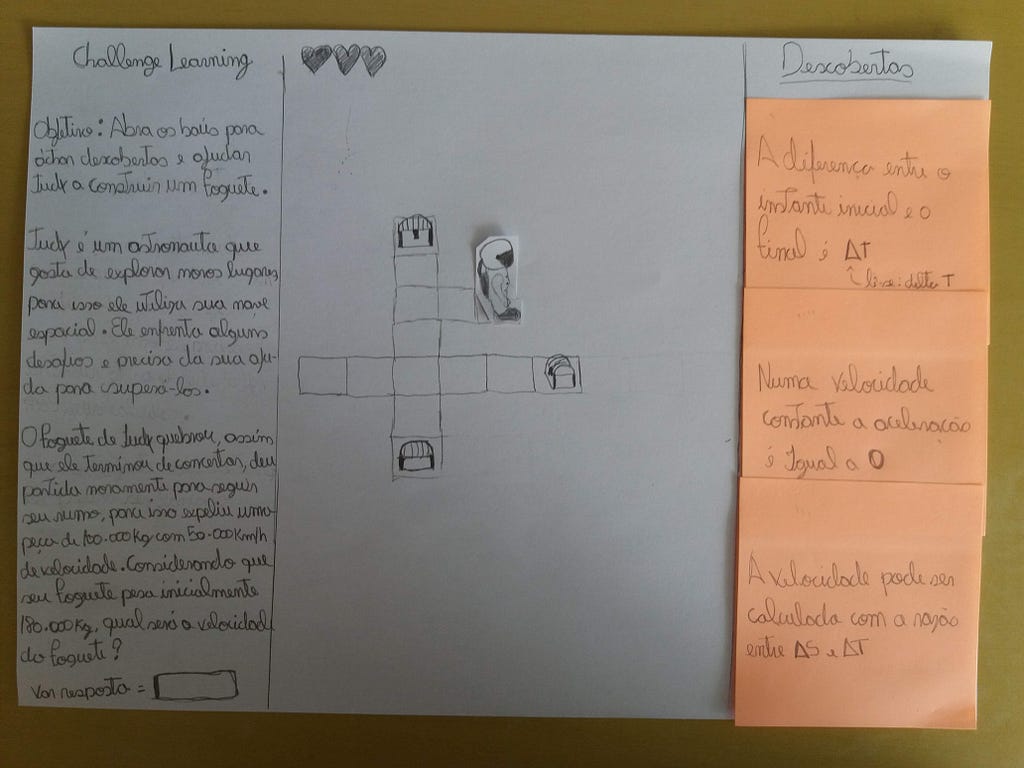 Challenge Learning
Objetivo: Abra os baús para
achar descobertas e ajudar
Judy a construir um foguete.
Judy é um astronauta que
gosta de explorar novos lugares,
para isso ele utiliza sua nave
espacial. Ele enfrenta alguns
desafios e precisa da sua aju-
da para superá-los.
O foguete de Judy quebrou, assim
que ele terminou de concertar, deu
partida novamente para seguir
seu rumo, para isso expeliu uma
peça de 100.000 Kg com 50.000 Km/h
de velocidade. Considerando que
seu foguete pesa inicialmente
180.000 Kg, qual será a velocidade
do foguete?
Var resposta =
Descobertas
A diferença entre o
instante inicial e o
final é ΔT
lê-se: delta T
Numa velocidade
constante a aceleração
é Igual a 0
A velocidade pode ser
calculada com a razão
entre ΔS e ΔT